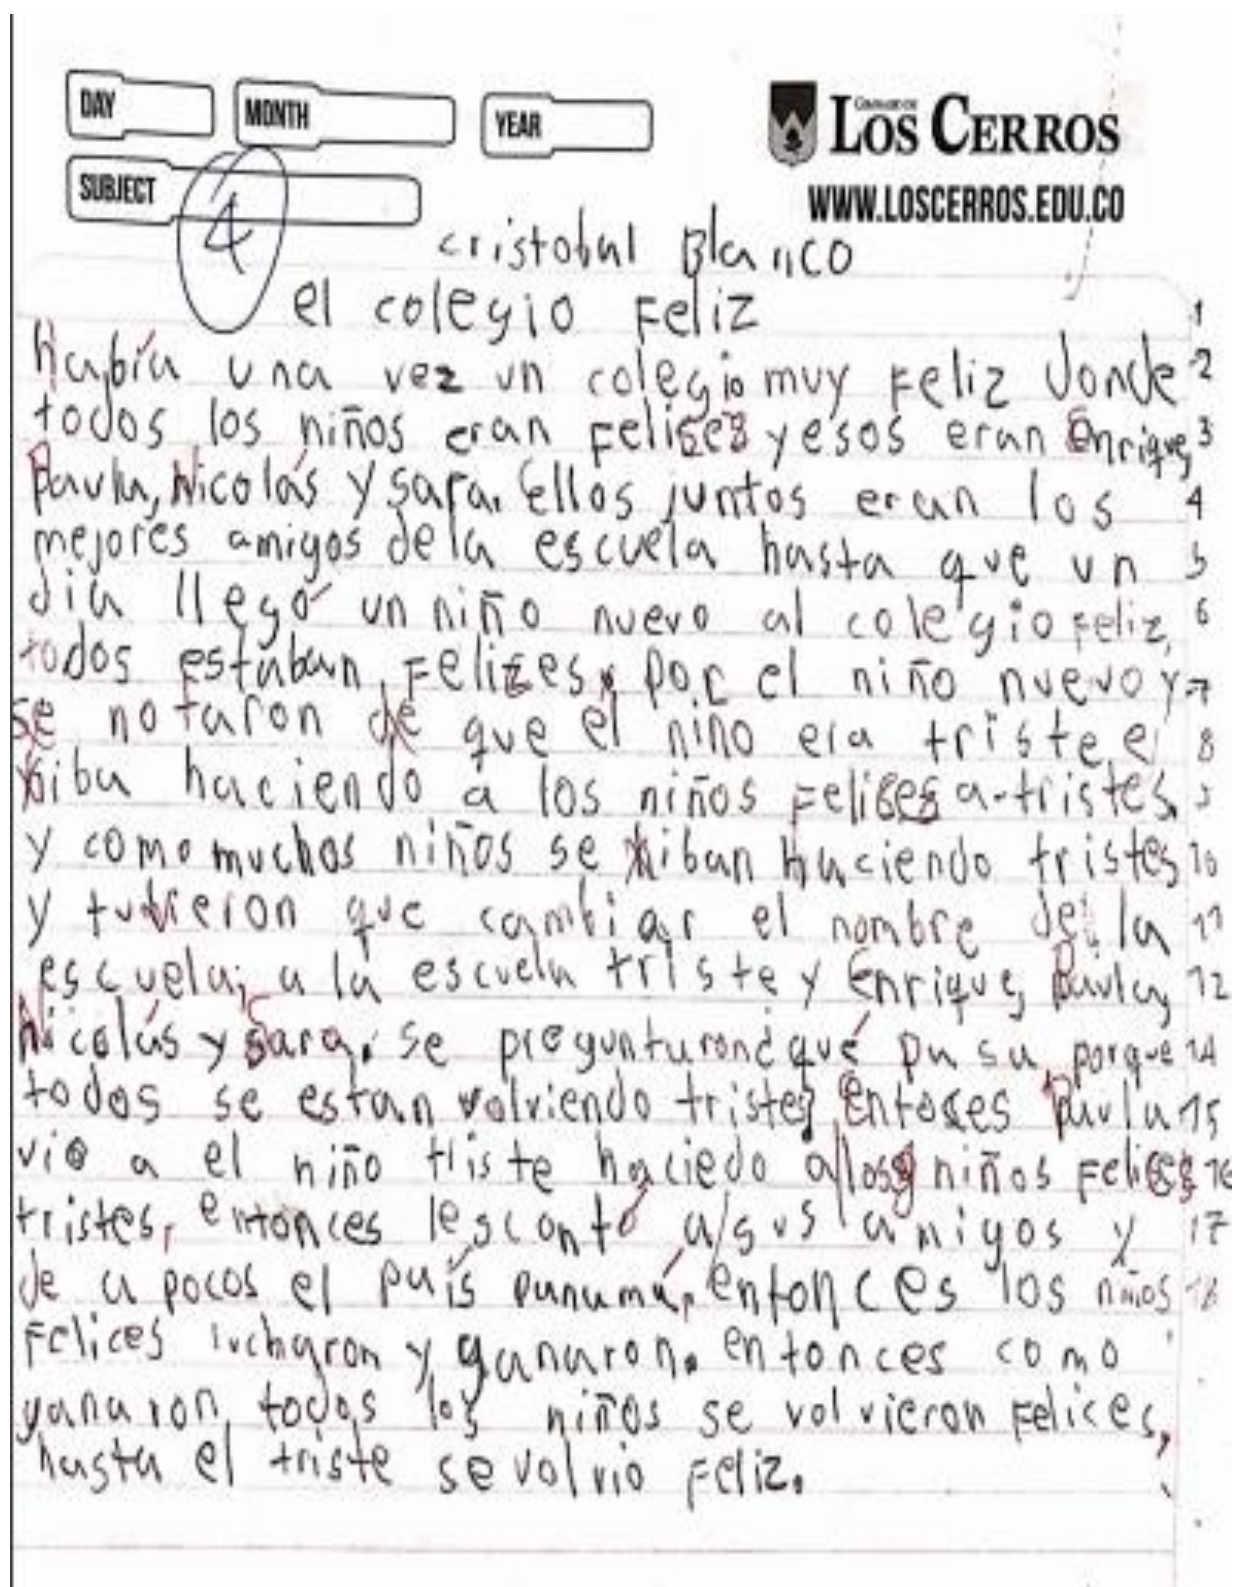 DAY MONTH YEAR
GIMNASIO DE
LOS CERROS
SUBJECT
WWW.LOSCERROS.EDU.CO
4
cristobal Blanco
el colegio Feliz 1
Había una vez un colegio muy Feliz donde 2
todos los niños eran Felices y esos eran Enrique, 3
Paula, Nicolás y sara. Ellos juntos eran los 4
mejores amigos de la escuela hasta que un 5
dia llegó un niño nuevo al colegio feliz, 6
todos estaban Felices por el niño nuevo y 7
se notaron de que el niño era triste e 8
iba haciendo a los niños Felices a-tristes,
y como muchos niños se iban haciendo tristes 10
y tuvieron que cambiar el nombre de la 11
escuela, a la escuela triste y Enrique, Paula, 12
Nicolás y Sara, se preguntaron ¿qué pasa, porque 14
todos se estan volviendo tristes? Entoces Paula 15
vio a el niño triste haciedo a los niños Felices 16
tristes, entonces les contó a sus amigos y 17
de a pocos el país panamá, entonces los niños 18
Felices lucharon y ganaron. entonces como
ganaron, todos los niños se volvieron Felices,
hasta el triste se volvio Feliz.